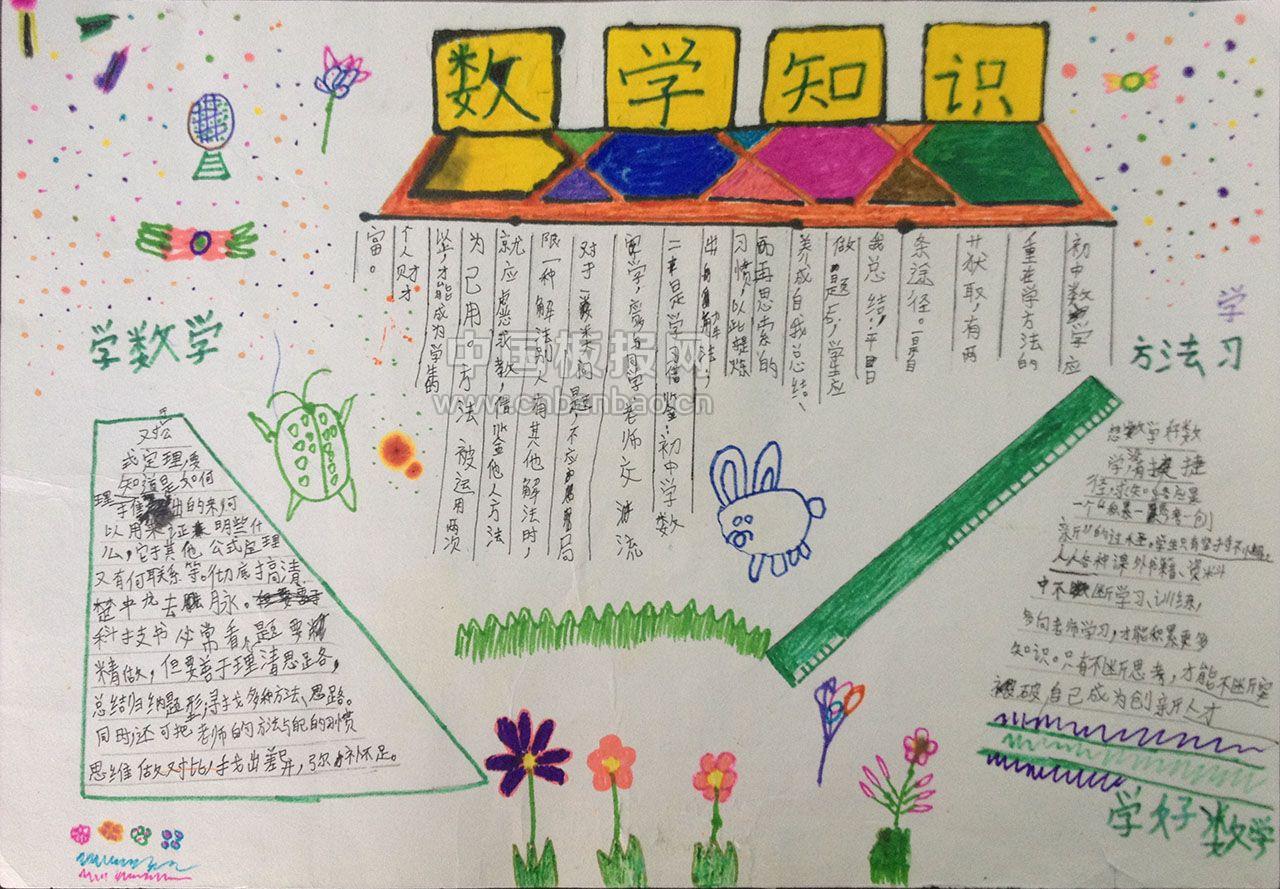 数学知识
初中数学应
重在学方法的
获取,有两
条途径。一是自
我总结:平日
做题后,学生应
养成自我总结、
而再思索的
习惯,以此提炼
出自解法;
二来是学习借鉴:初中学数
学,应与同学老师交流
对于一类问题,不应局
限一种解法,别人有其他解法时,
就应虚心求教,借鉴他人方法
为己用。方法被运用两次
后,才能成为学生的
个人财才
富。
学数学
对公
式定理要
知道是如何
理推出的来,何
以用来证明些什
么,它于其他公式定理
又有何联系等。彻底搞清
楚中尤去脉。
科技支书必常看,题要
精做,但要善于理清思路,
总结归纳题形,寻找多种方法、思路。
同时还可把老师的方法与自己的习惯
思维做对比,找出差异,弥补不足。
学
方法习
想学好数
学,没有捷
径。求知应是
一个"积累一思考一创
新"的过程。学生只有坚持不
人各种课外书籍、资料
中不断学习、训练,
多向老师学习,才能积累更多
知识。只有不断思考,才能不断突
破,自己成为创新人才
学好数学
中国板报网
www.cnbanbao.cn